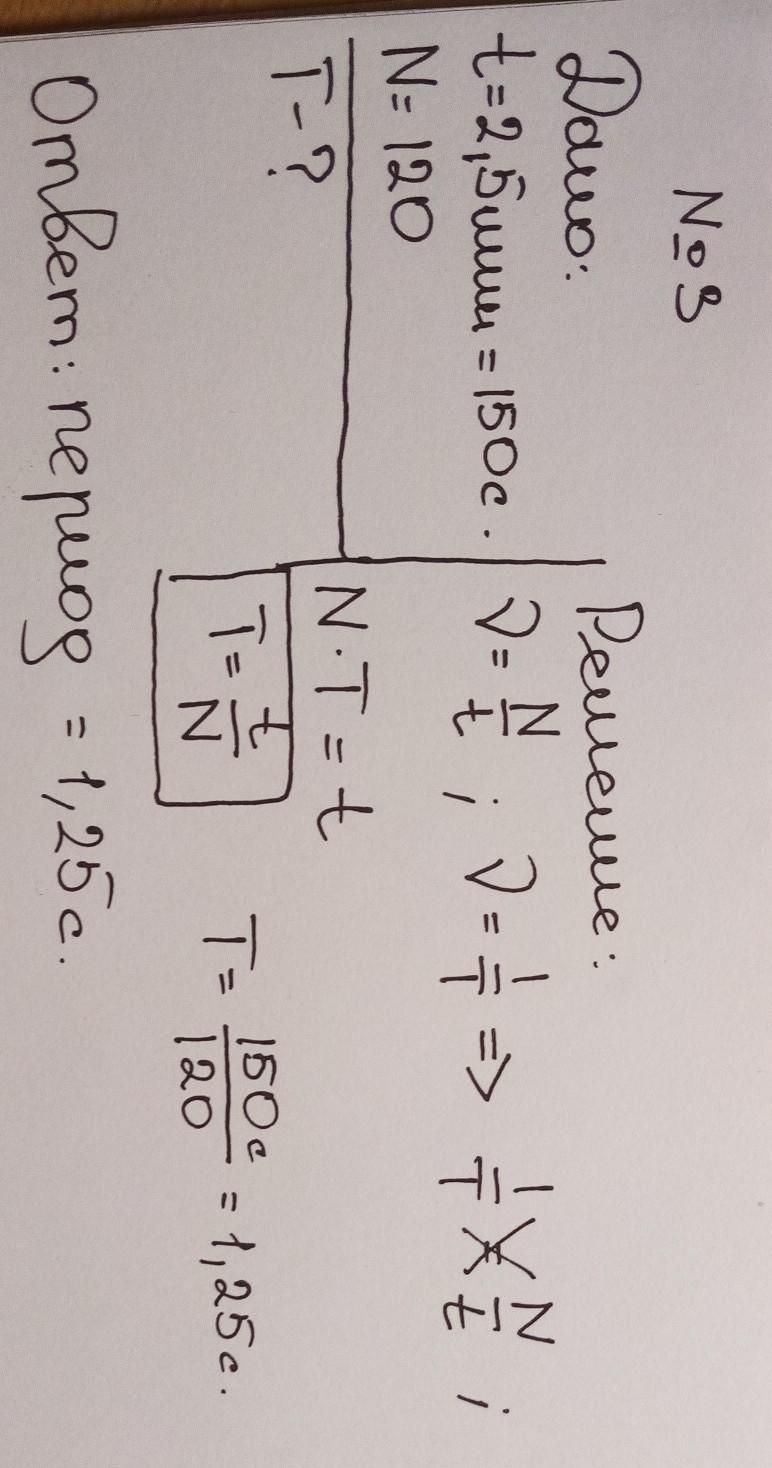 №3
Дано:
t=2,5мин=150с.
N=120
T-?
Решение:
ν=N/t; ν=1/T => 1/T = N/t;
N·T=t
T=t/N
T=150с/120=1,25с.
Ответ: период =1,25с.